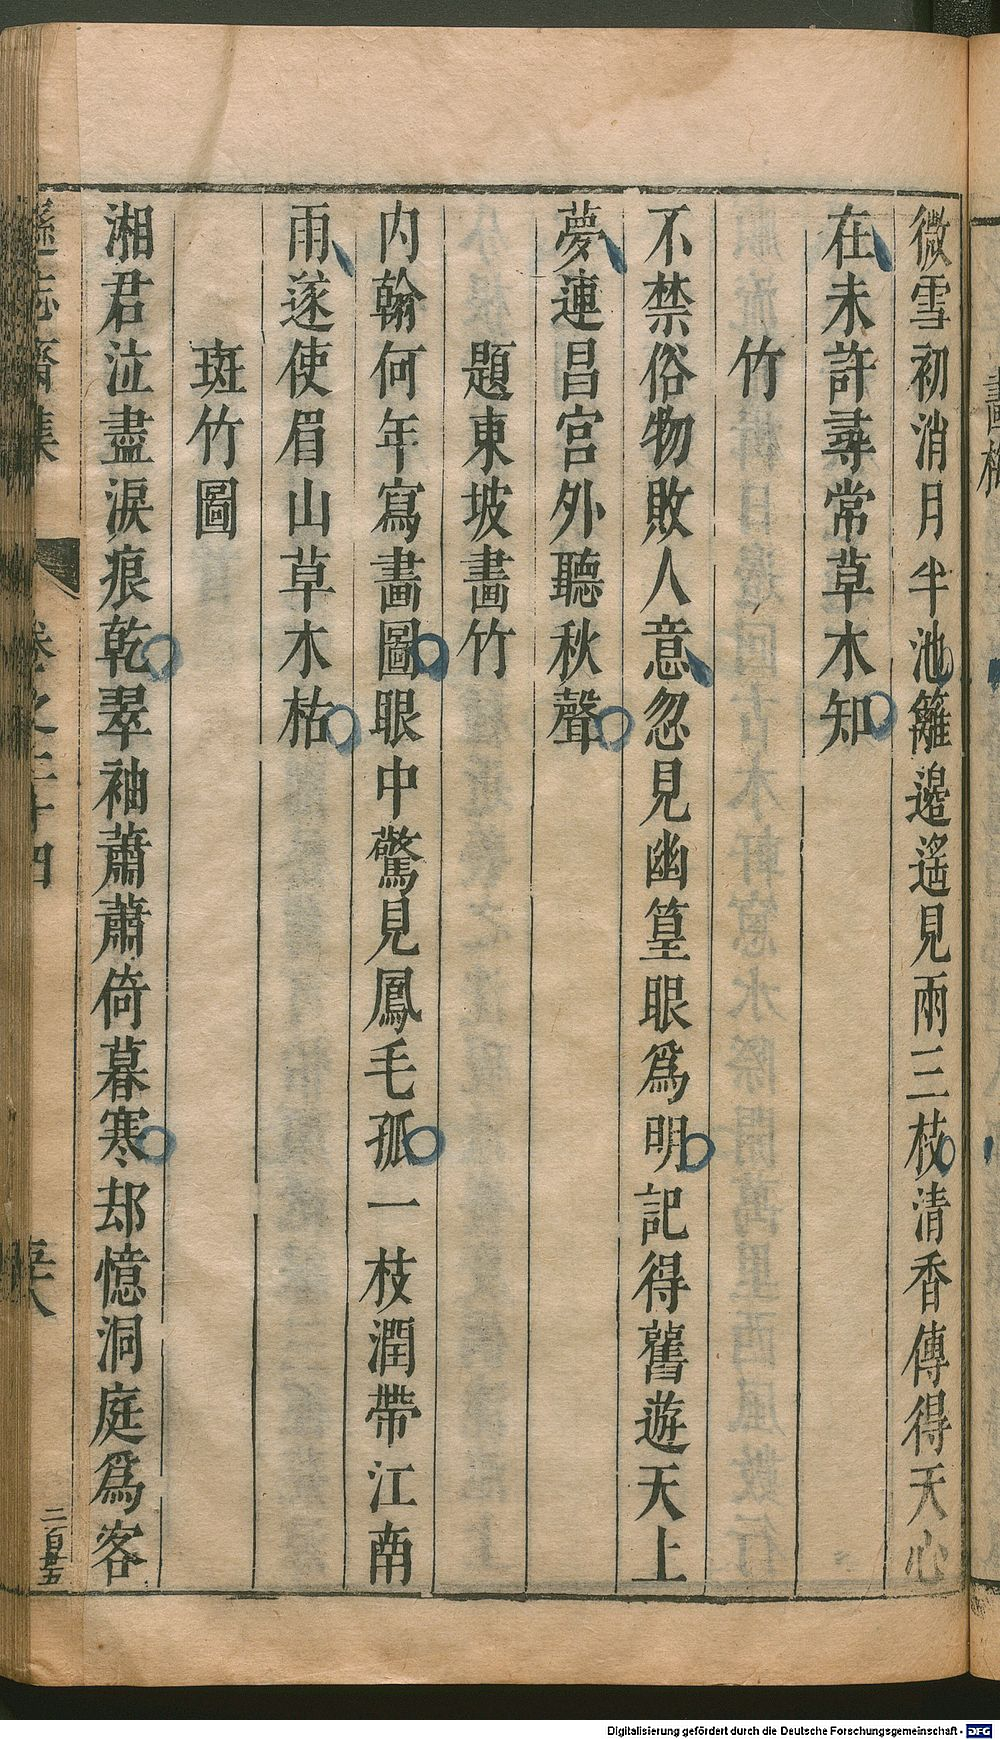 微雪初消月半池籬邉遙見兩三枝清香傳得天心
在未許尋常草木知
竹
不禁俗物敗人意忽見幽篁眼爲明記得舊遊天上
夢連昌宮外聽秋聲
題東坡畫竹
内翰何年寫畫圖眼中驚見鳳毛孤一枝潤帶江南
雨遂使眉山草木枯
斑竹圖
湘君泣盡淚痕乾翠袖蕭蕭倚暮寒却憶洞庭爲客
遜志齋集
卷之二十四
至八
二百廿五
Digitalisierung gefördert durch die Deutsche Forschungsgemeinschaft - DFG